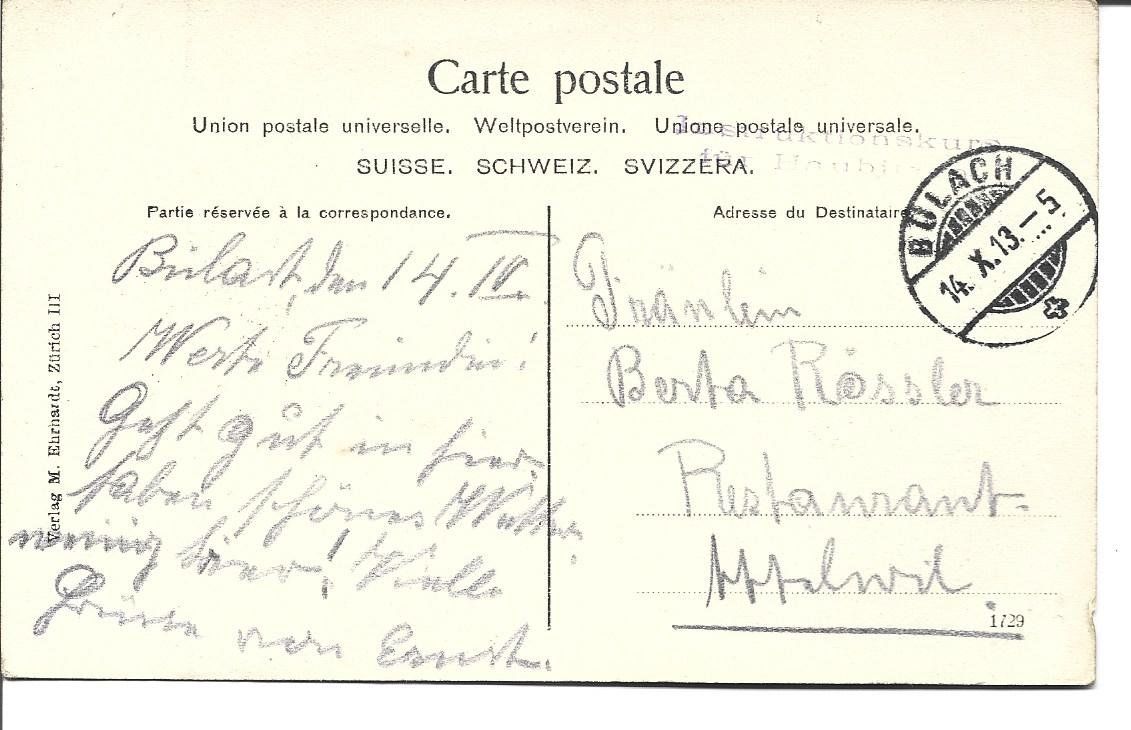 Carte postale
Union postale universelle. Weltpostverein. Unione postale universale.
SUISSE. SCHWEIZ. SVIZZERA.
Instruktionskurs
für
BÜLACH
14. X. 13. – 5
Partie réservée à la correspondance.
Adresse du Destinataire
Bülach, den 14. IV.
Werte Freundin!
Geht gut in hier
haben schönes Wetter
wenig
Grüsse von Ernst.
Fräulein
Berta Rössler
Restaurant
1729
Verlag M. Ehrhardt, Zürich III